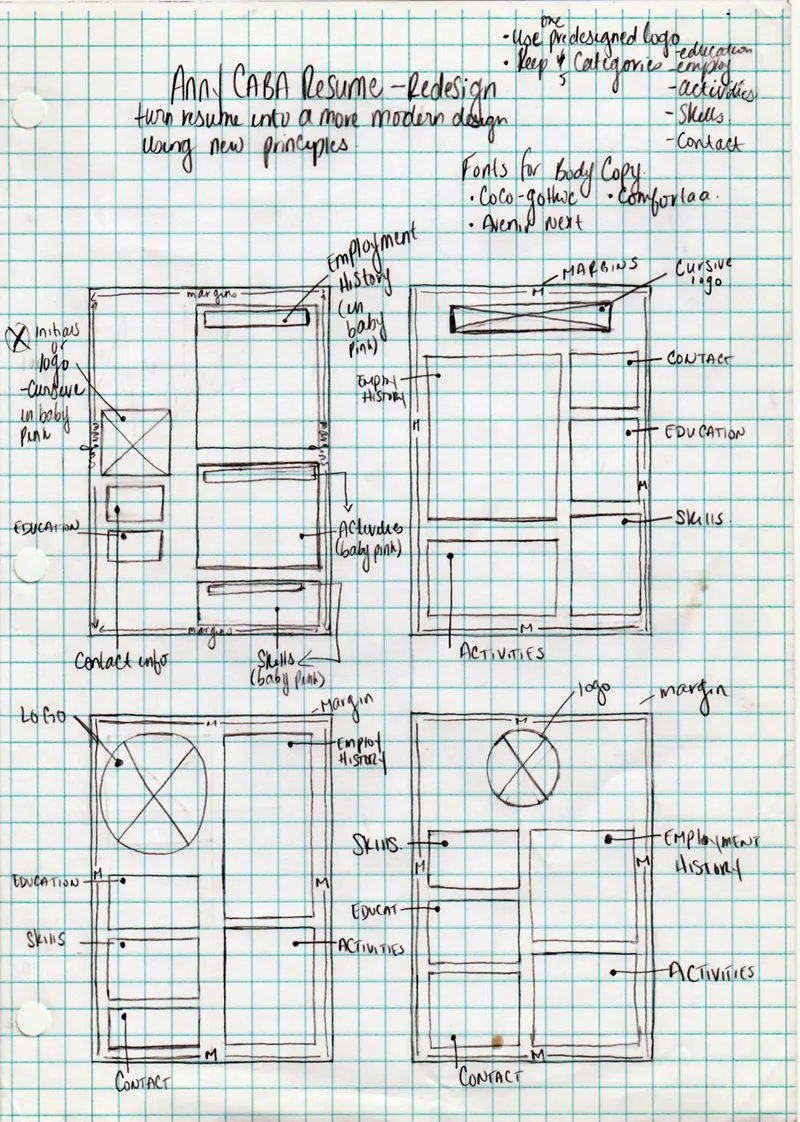 one
• Use predesigned logo
• Keep 5 Categories
- education
- employ
- activities
- Skills
- Contact
Anny CABA Resume - Redesign
turn resume into a more modern design
using new principles.
Fonts for Body Copy.
• Coco-gothic • Comfortaa.
• Avenir Next
Employment
History
(in
baby
pink)
margins
Initials
or
logo
- Cursive
in baby
pink
margins
margins
EDUCATION
Activities
(baby pink)
margins
Contact info
Skills
(baby pink)
MARGINS
M
Cursive
logo
CONTACT
Employ
HISTORY
M
EDUCATION
M
Skills.
M
ACTIVITIES
LOGO
Margin
M
Employ
HISTORY
M
M
EDUCATION
Skills
ACTIVITIES
M
CONTACT
logo
margin
M
Skills.
EMPLOYMENT
HISTORY
M
M
EDUCAT
ACTIVITIES
M
CONTACT